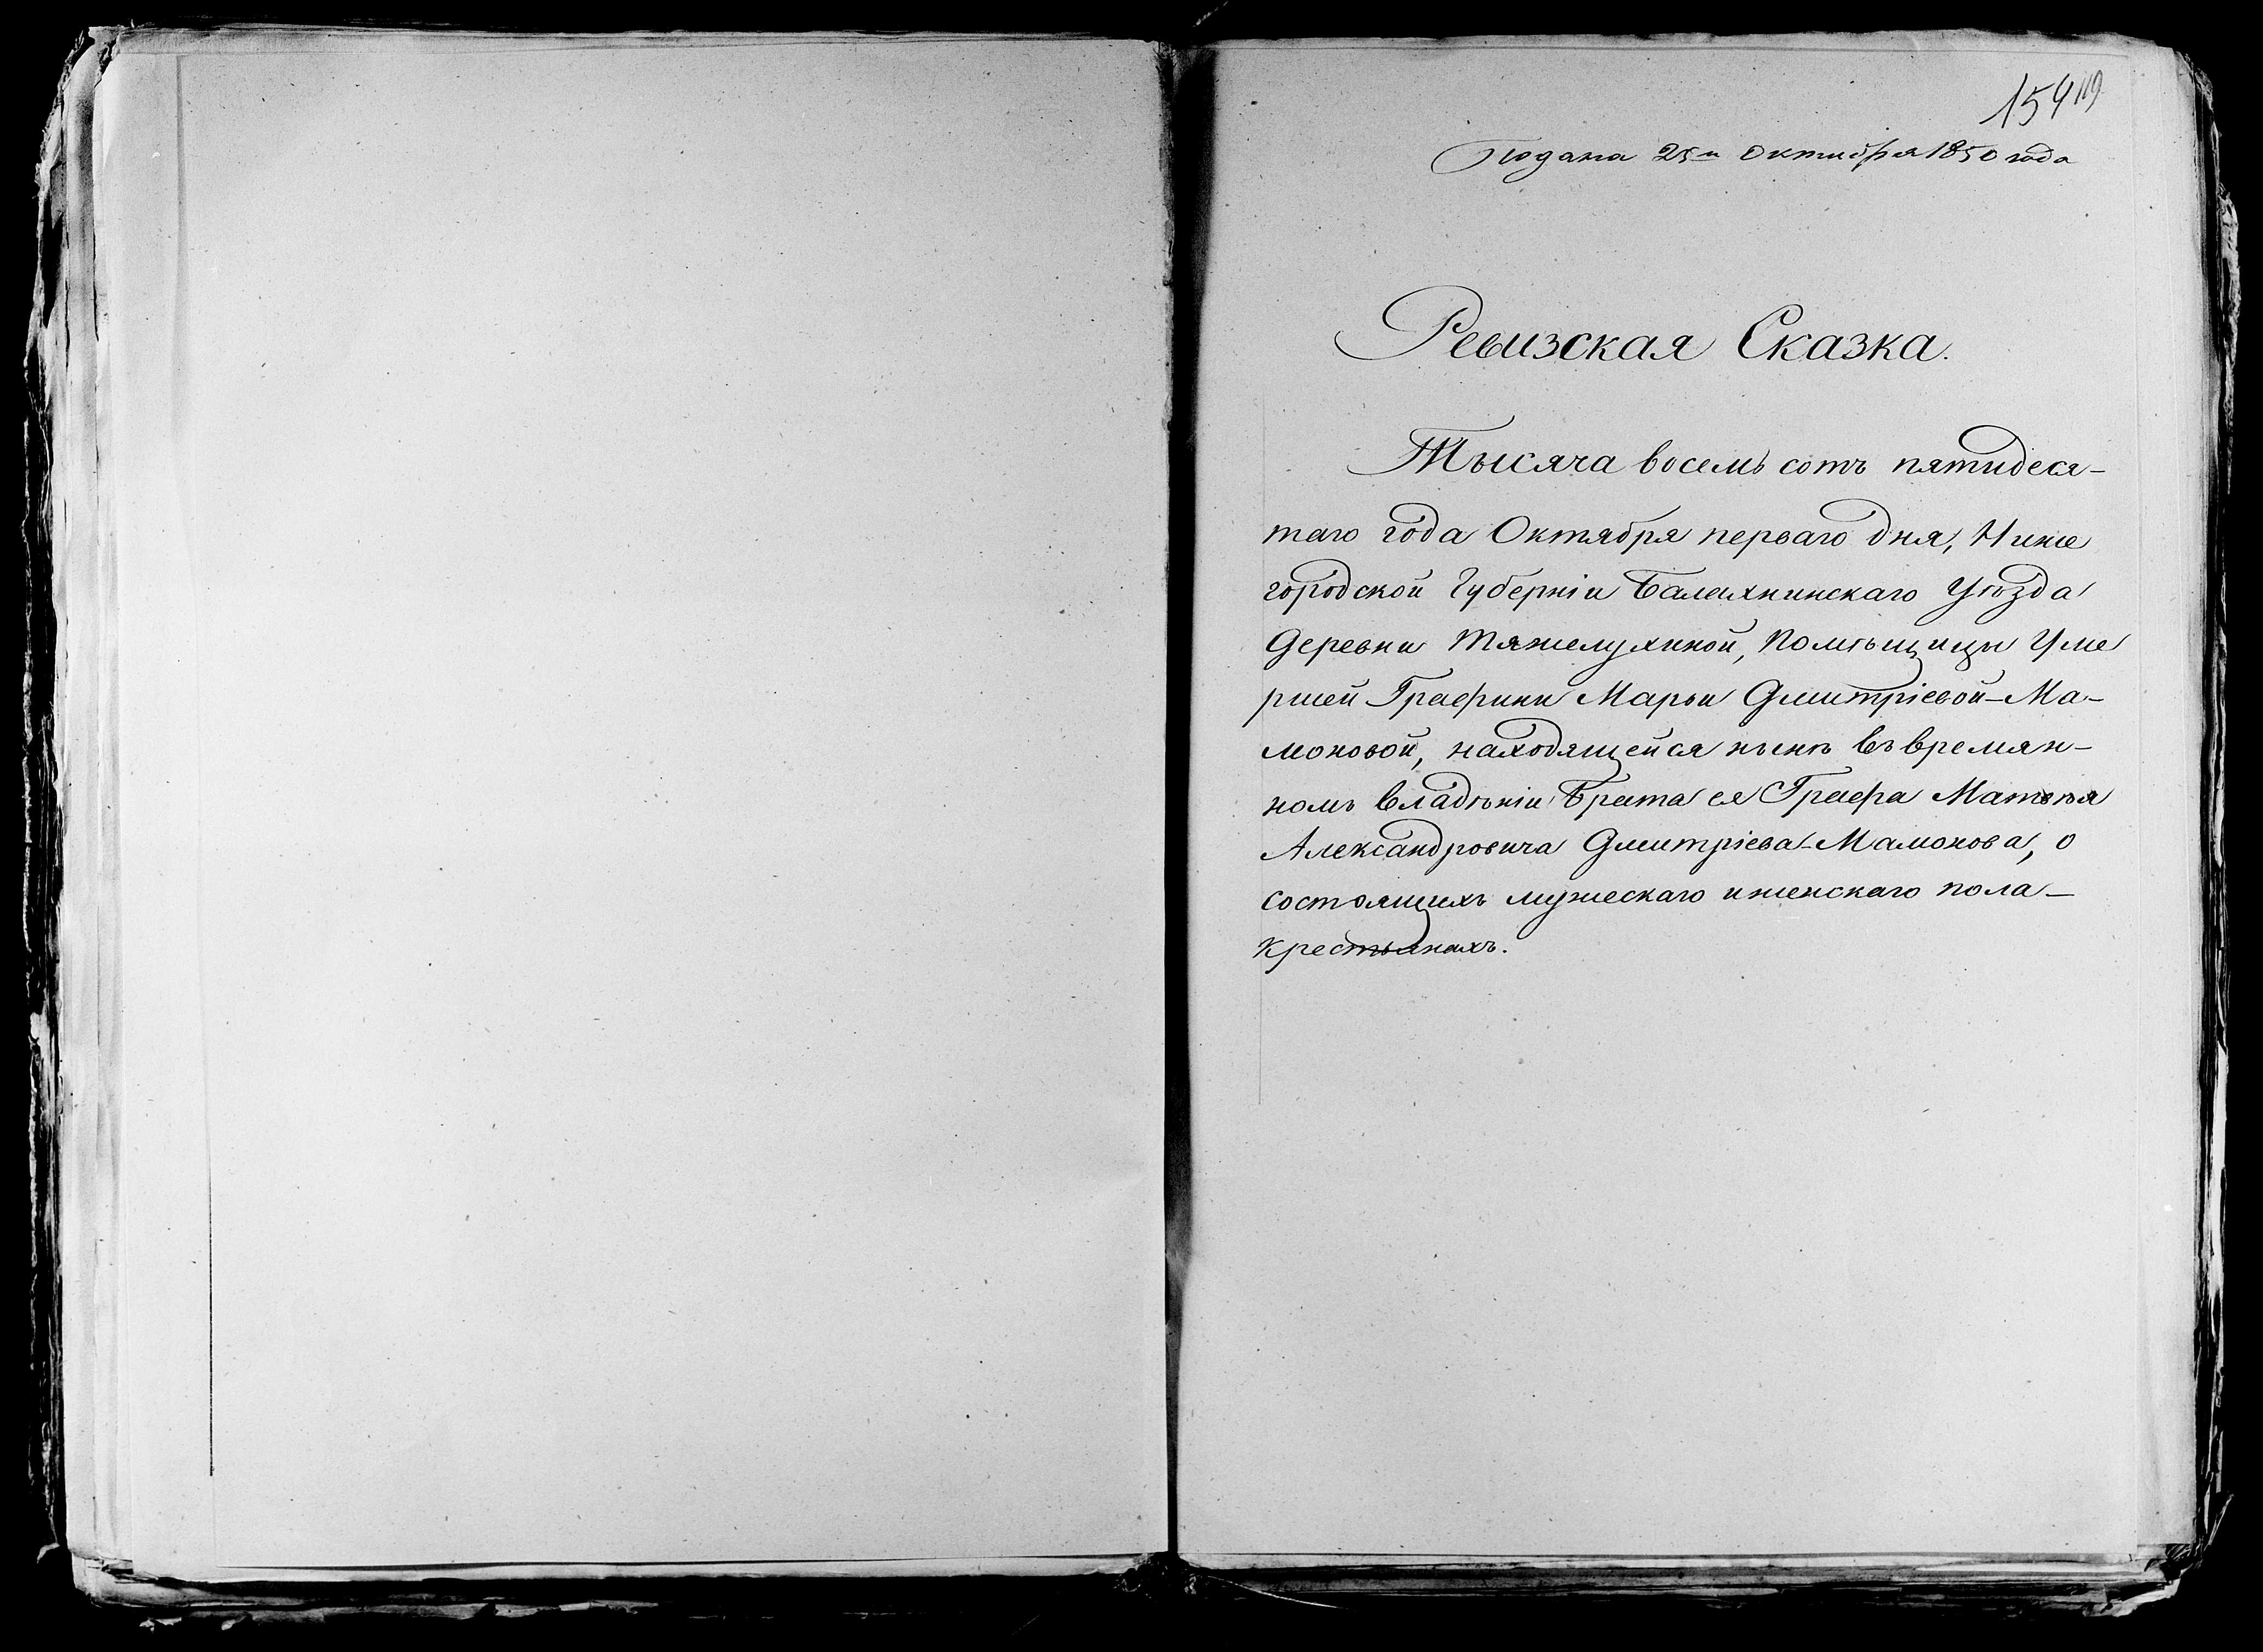 154 119
Подана 25го Октября 1850 года
Ревизская Сказка.
Тысяча восемь сотъ пятидеся-
таго года Октября перваго дня, Ниже
городской Губерніи Балахнинскаго Уѣзда
Деревни Тяжелухиной, Помѣщицы Уме
ршей Графини Марьи Дмитріевой-Ма-
моновой, находящейся нынѣ въ времян-
номъ владѣніи Брата ея Графа Матвѣя
Александровича Дмитріева-Мамонова, о
состоящихъ мужескаго и женскаго пола-
крестьянахъ.